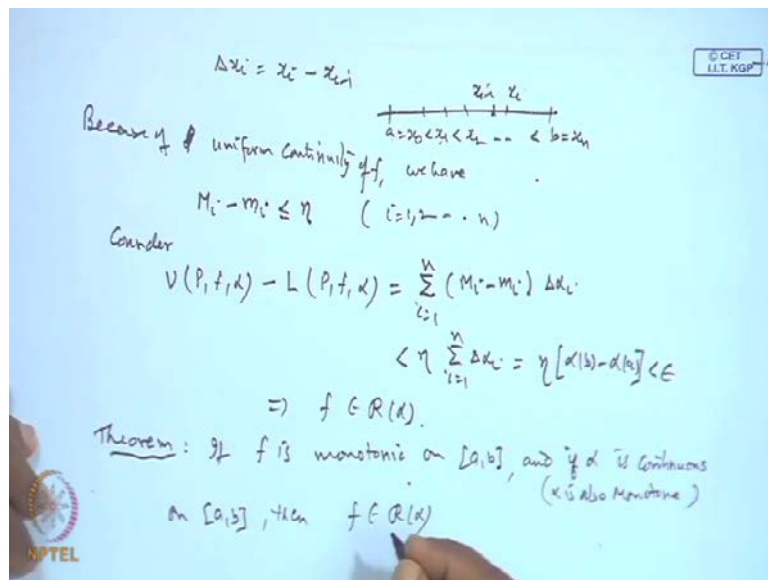 Δxi = xi - xi-1
© CET
I.I.T. KGP
xi-1 xi
a=x0<x1<x2 -- < b=xn
Because of uniform continuity of f, we have
Mi - mi ≤ η ( i=1,2-- . n)
Consider
U(P,f,α) - L(P,f,α) = n∑i=1 (Mi-mi) Δαi
< η n∑i=1 Δαi = η [α(b)-α(a)] < ε
⇒ f ∈ R(α).
Theorem: If f is monotonic on [a,b], and if α is continuous
(α is also monotone)
on [a,b], then f ∈ R(α)
NPTEL